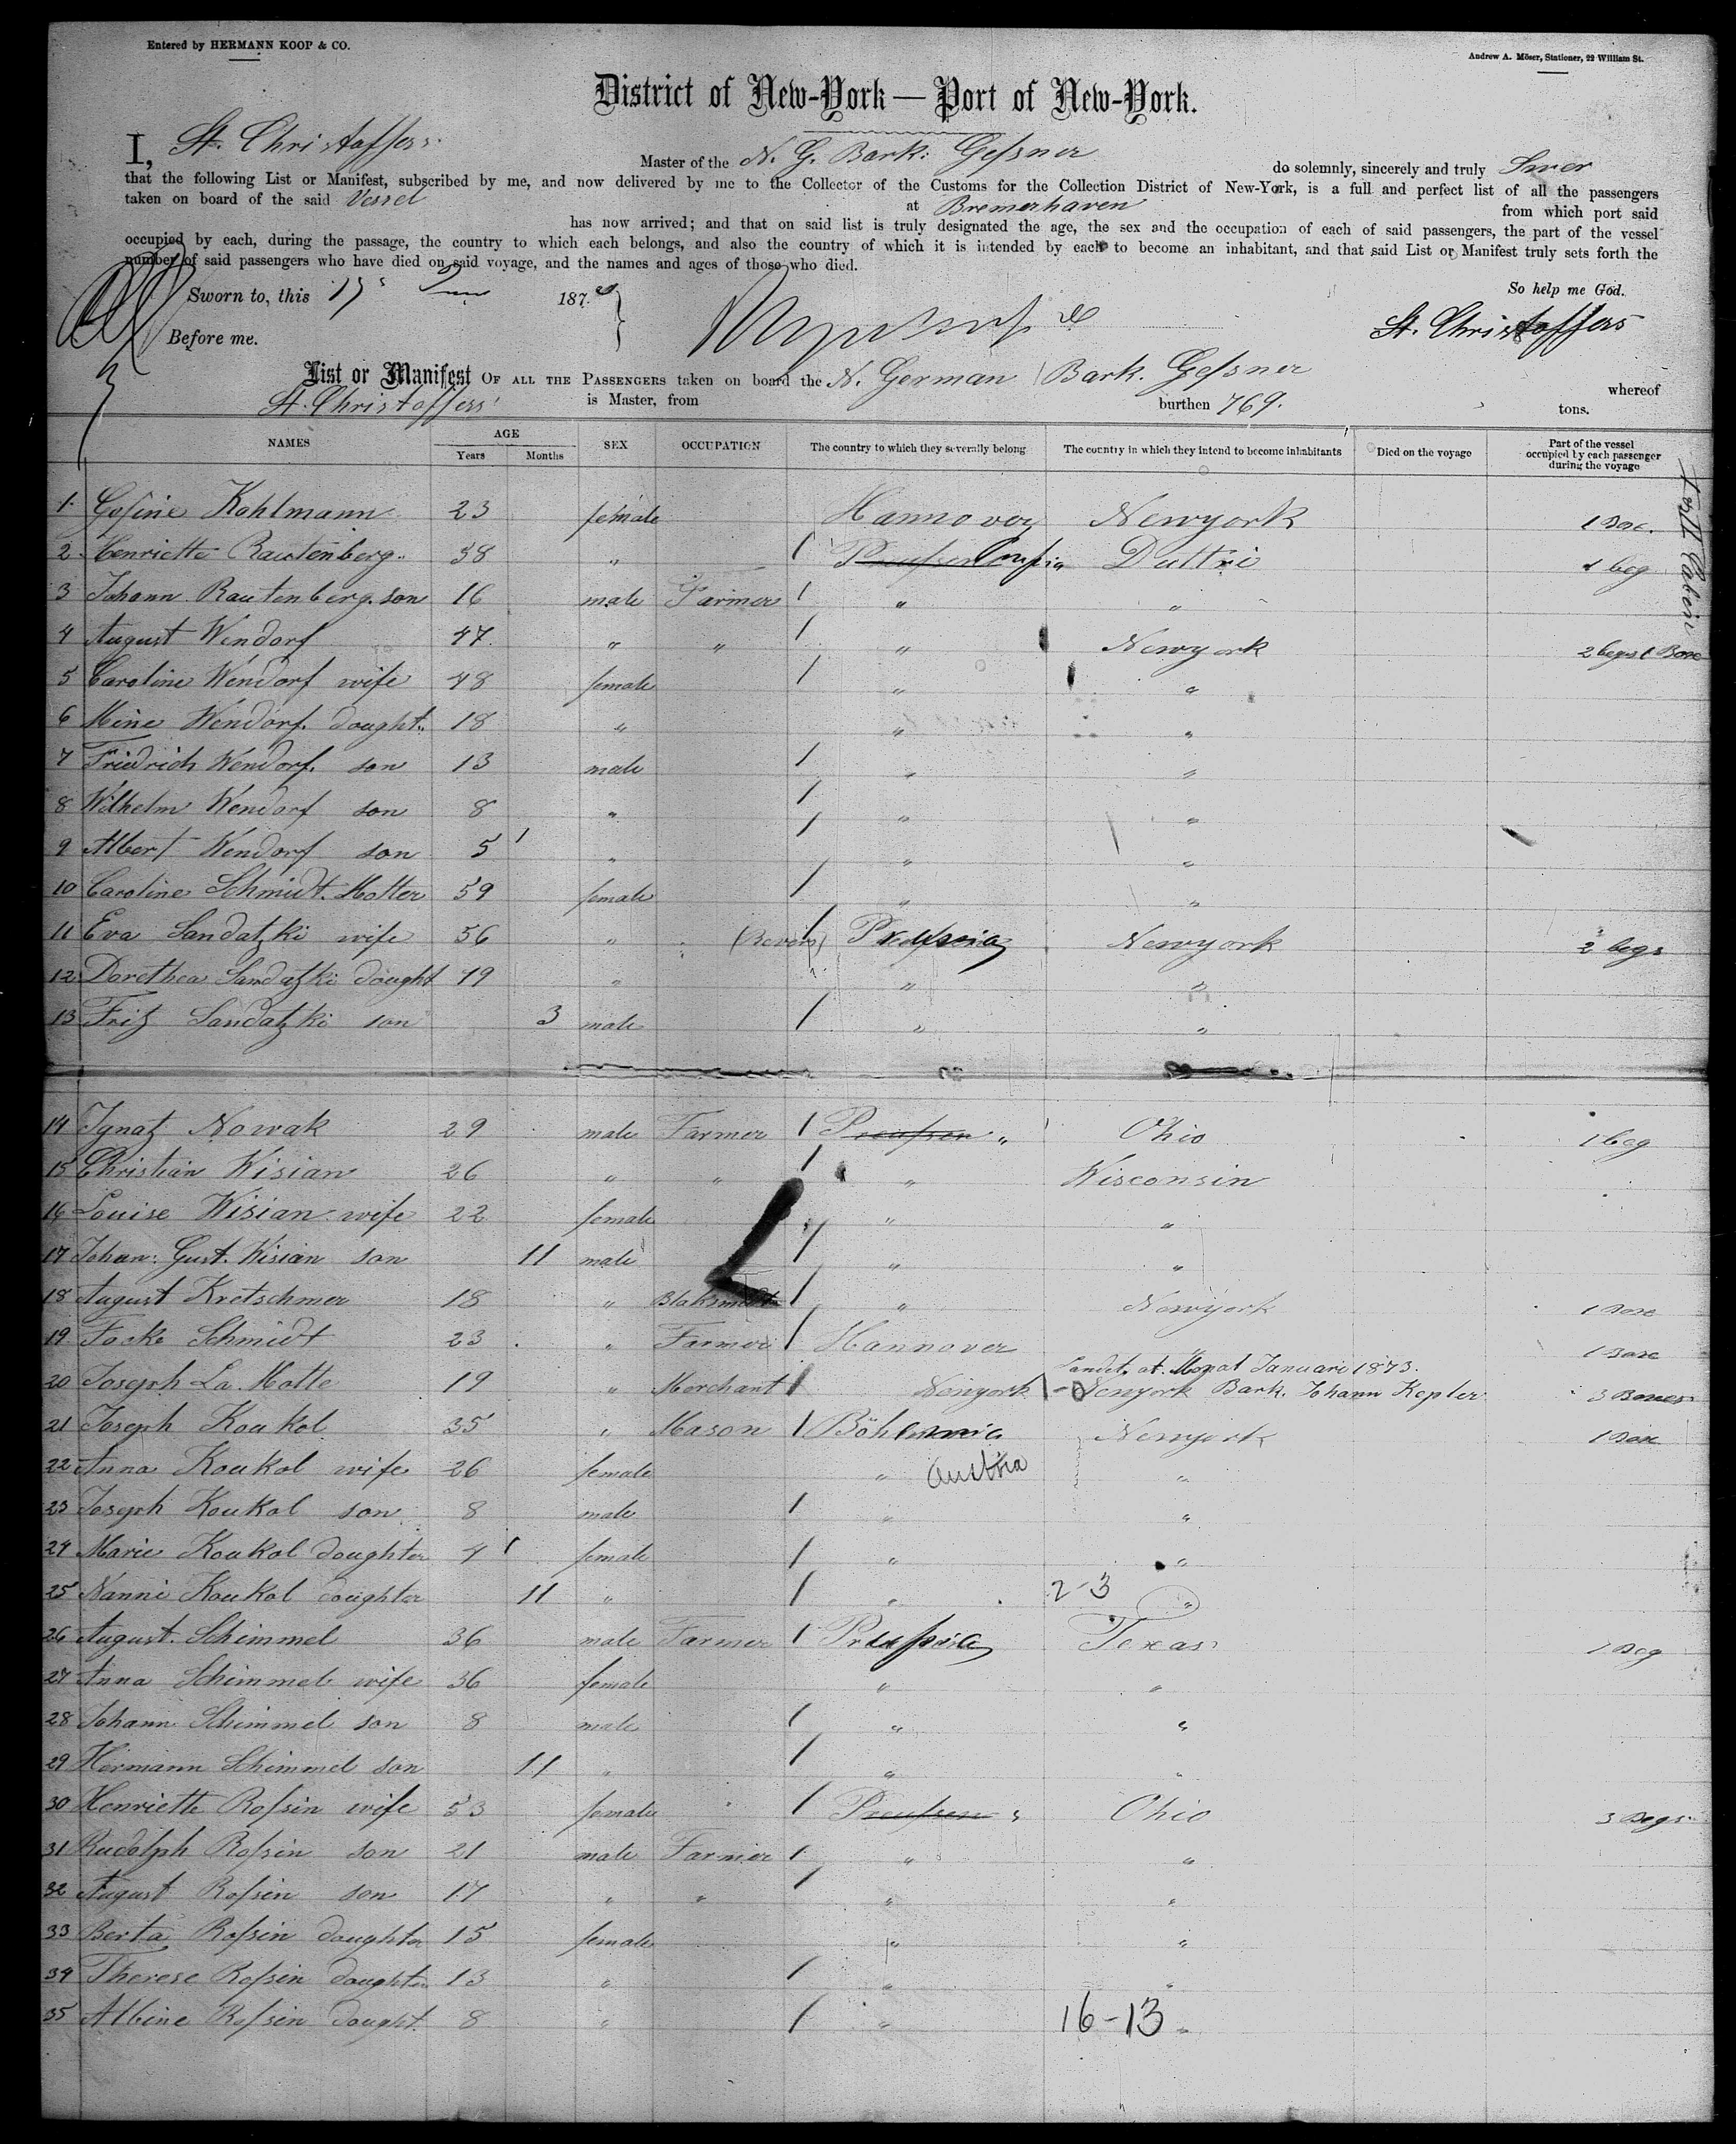 Entered by HERMANN KOOP & CO.
Andrew A. Möser, Stationer, 22 William St.
District of New-York — Port of New-York.
I, St. Christoffers Master of the N. G. Bark: Geſsner do solemnly, sincerely and truly Swer
that the following List or Manifest, subscribed by me, and now delivered by me to the Collector of the Customs for the Collection District of New-York, is a full and perfect list of all the passengers
taken on board of the said Vessel at Bremerhaven from which port said
has now arrived; and that on said list is truly designated the age, the sex and the occupation of each of said passengers, the part of the vessel
occupied by each, during the passage, the country to which each belongs, and also the country of which it is intended by each to become an inhabitant, and that said List or Manifest truly sets forth the
number of said passengers who have died on said voyage, and the names and ages of those who died.
Sworn to, this 187 So help me God.
Before me. St. Christoffers
List or Manifest OF ALL THE PASSENGERS taken on board the N. German Bark. Geſsner whereof
St. Christoffers is Master, from burthen 769. tons.
NAMES AGE Years Months SEX OCCUPATION The country to which they severally belong The country in which they intend to become inhabitants Died on the voyage Part of the vessel occupied by each passenger during the voyage
1 Gesine Kohlmann 23 female Hannover Newyork 1 Box.
2 Henriette Rautenberg. 38 " Preuſsen " 1 beg
3 Johann Rautenberg. son 16 male Farmer " "
4 August Wendorf 47 " " " Newyork 2 begs 1 Box
5 Caroline Wendorf wife 48 female " "
6 Mine Wendorf. dought. 18 " " "
7 Friedrich Wendorf. son 13 male " "
8 Wilhelm Wendorf son 8 " " "
9 Albert Wendorf son 5 " " "
10 Caroline Schmidt. Motter 59 female " "
11 Eva Sandatzki wife 56 " Preuſsia Newyork 2 begs
12 Dorethea Sandatzki dought 19 " " "
13 Fritz Sandatzki son 3 male " "
14 Ignatz Nowak 29 male Farmer Preuſsen " Ohio 1 beg
15 Christian Wisian 26 " " " Wisconsin
16 Louise Wisian wife 22 female " "
17 Johan: Gust. Wisian son 11 male " "
18 August Kretschmer 18 " Blaksmidt " Newyork 1 Box
19 Focke Schmidt 23 " Farmer Hannover " 1 Box
Landet at Januari 1873.
20 Joseph La Motte 19 " Merchant Newyork Newyork Bark. Johann Kepler 3 Boxes
21 Joseph Koukol 35 " Mason Böhmia Newyork 1 Box
22 Anna Koukol wife 26 female " Austria "
23 Joseph Koukol son 8 male " "
24 Marie Koukol doughter 4 female " "
25 Nanni Koukol doughter 11 " " 2-3 "
26 August Schimmel 36 male Farmer Preuſsia Texas 1 Beg
27 Anna Schimmel wife 36 female " "
28 Johann Schimmel son 8 male " "
29 Hermann Schimmel son 11 " " "
30 Henriette Roſsin wife 53 female Preuſsen " Ohio 3 Begs
31 Rudolph Roſsin son 21 male Farmer " "
32 August Roſsin son 17 " " " "
33 Berta Roſsin doughter 15 female " "
34 Therese Roſsin doughter 13 " " "
35 Albine Roſsin dought. 8 " " 16-13 "